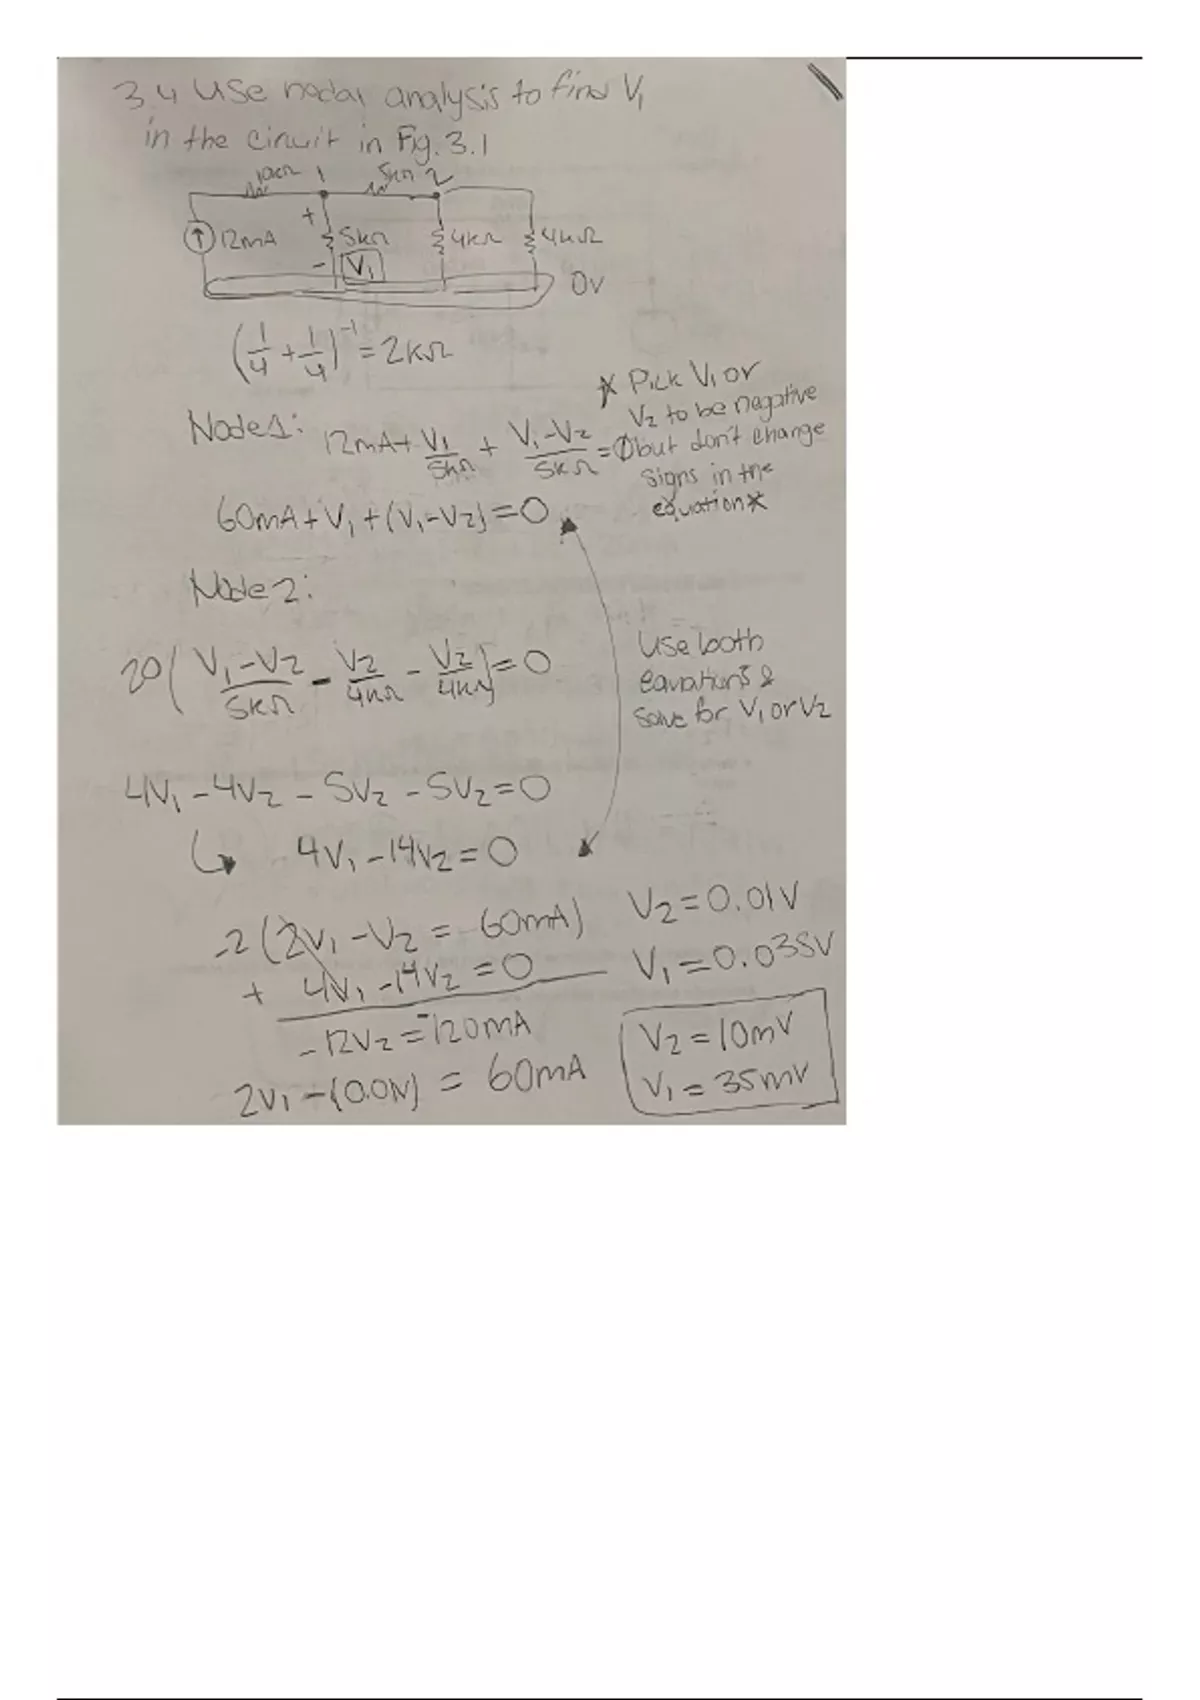 3.4 Use nodal analysis to find V₁
in the circuit in Fig. 3.1
10kΩ 1 5kΩ 2
+
12mA 5kΩ 4kΩ 4kΩ
- V₁
0V
(1/4 + 1/4)⁻¹ = 2KΩ
* Pick V₁ or
V₂ to be negative
but don't change
signs in the
equation*
Node 1: 12mA + V₁/5kΩ + V₁-V₂/5KΩ = 0
60mA + V₁ + (V₁-V₂) = 0
Node 2:
20(V₁-V₂/5KΩ - V₂/4KΩ - V₂/4KΩ) = 0
Use both
equations &
solve for V₁ or V₂
4V₁ - 4V₂ - 5V₂ - 5V₂ = 0
4V₁ - 14V₂ = 0
-2(2V₁ - V₂ = 60mA)
+ 4V₁ - 14V₂ = 0
-12V₂ = -120mA
2V₁ - (0.01V) = 60mA
V₂ = 0.01V
V₁ = 0.035V
V₂ = 10mV
V₁ = 35mV